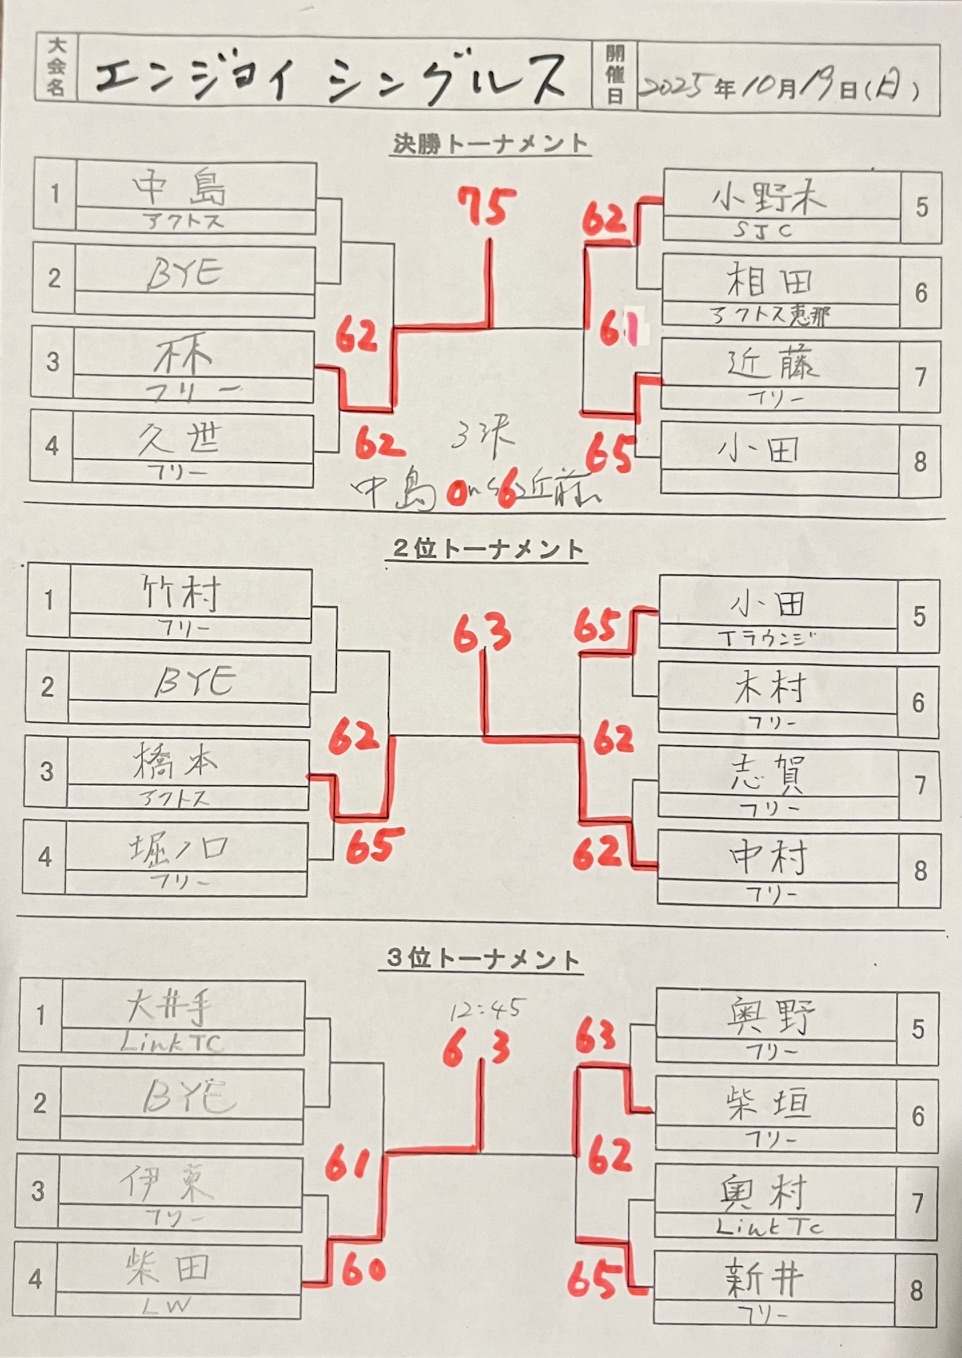 大会名 エンジョイ シングルス 開催日 2025年10月19日(日)
決勝トーナメント
1 中島 アクトス
2 BYE
3 林 フリー
4 久世 フリー
62
62
75
62
61
65
小野木 SJC 5
相田 アクトス恵那 6
近藤 フリー 7
小田 8
3決
中島 0 vs 6 近藤
2位トーナメント
1 竹村 フリー
2 BYE
3 橋本 アクトス
4 堀ノ口 フリー
62
65
63
65
62
62
小田 Tラウンジ 5
木村 フリー 6
志賀 フリー 7
中村 フリー 8
3位トーナメント
12:45
1 大井手 Link TC
2 BYE
3 伊東 フリー
4 柴田 LW
61
60
6 3
63
62
65
奥野 フリー 5
柴垣 フリー 6
奥村 Link TC 7
新井 フリー 8